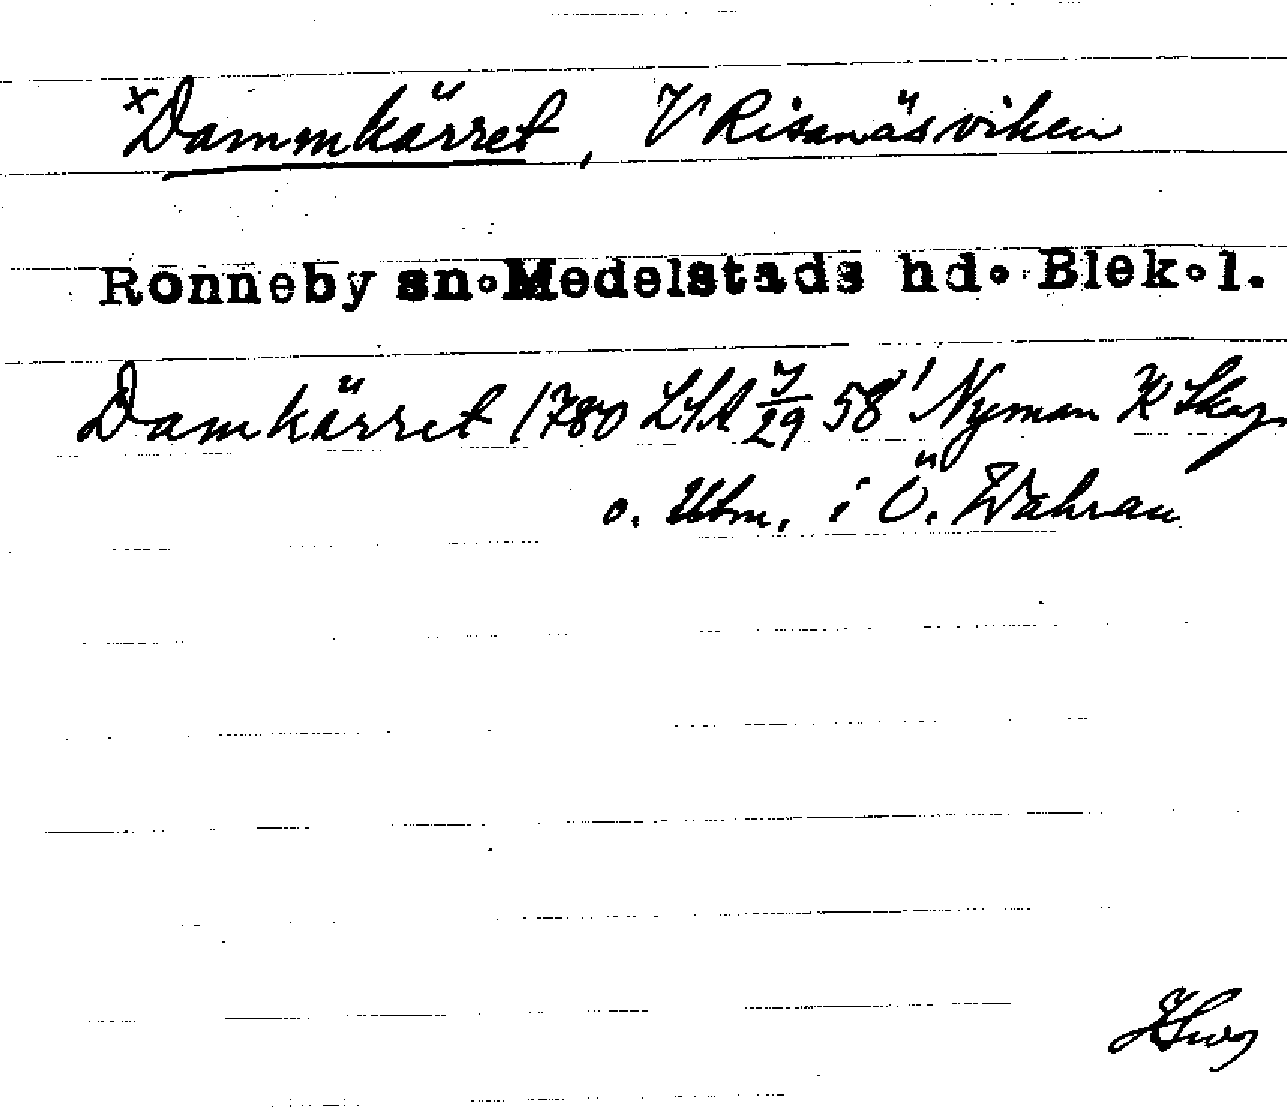 xDammkärret, V Risanäsviken
Ronneby sn. Medelstads hd. Blek. l.
Damkärret 1780 LSA 58' Nyman K Skog
o. Utm. i Ö. Wahran